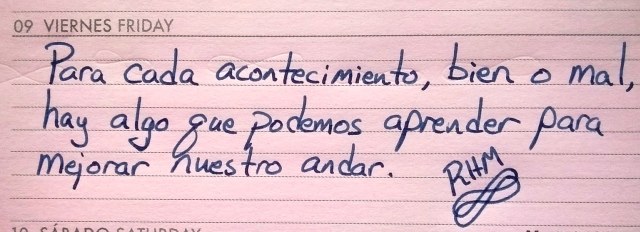 09 VIERNES FRIDAY
Para cada acontecimiento, bien o mal,
hay algo que podemos aprender para
mejorar nuestro andar.
RHM
10 SÁBADO SATURDAY